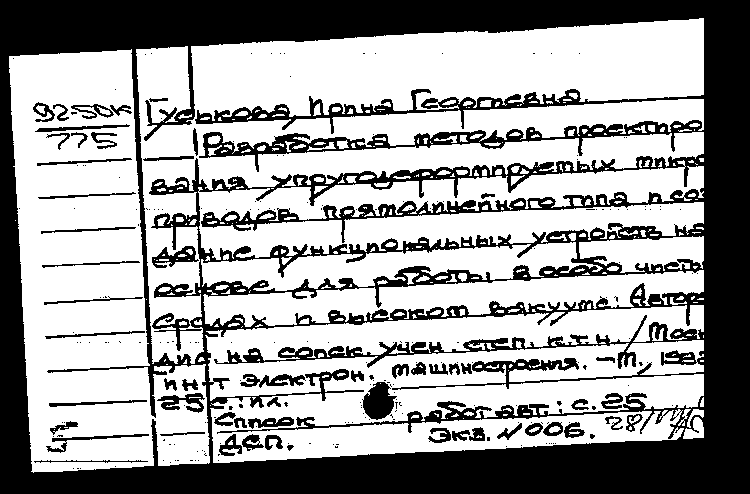 92-50к Гуськова, Ирина Георгиевна.
775 Разработка методов проектиро
вания упругодеформируемых микро
приводов прямолинейного типа и соз
дание функциональных устройств на
основе для работы в особо чисты
средах и высоком вакууме: Авторе
дис. на соиск. учен. степ. к.т.н. / Моск
ин-т электрон. машиностроения. - М.,
25 с.: ил.
Список работ авт.: с. 25
ДСП. Экз. №006.